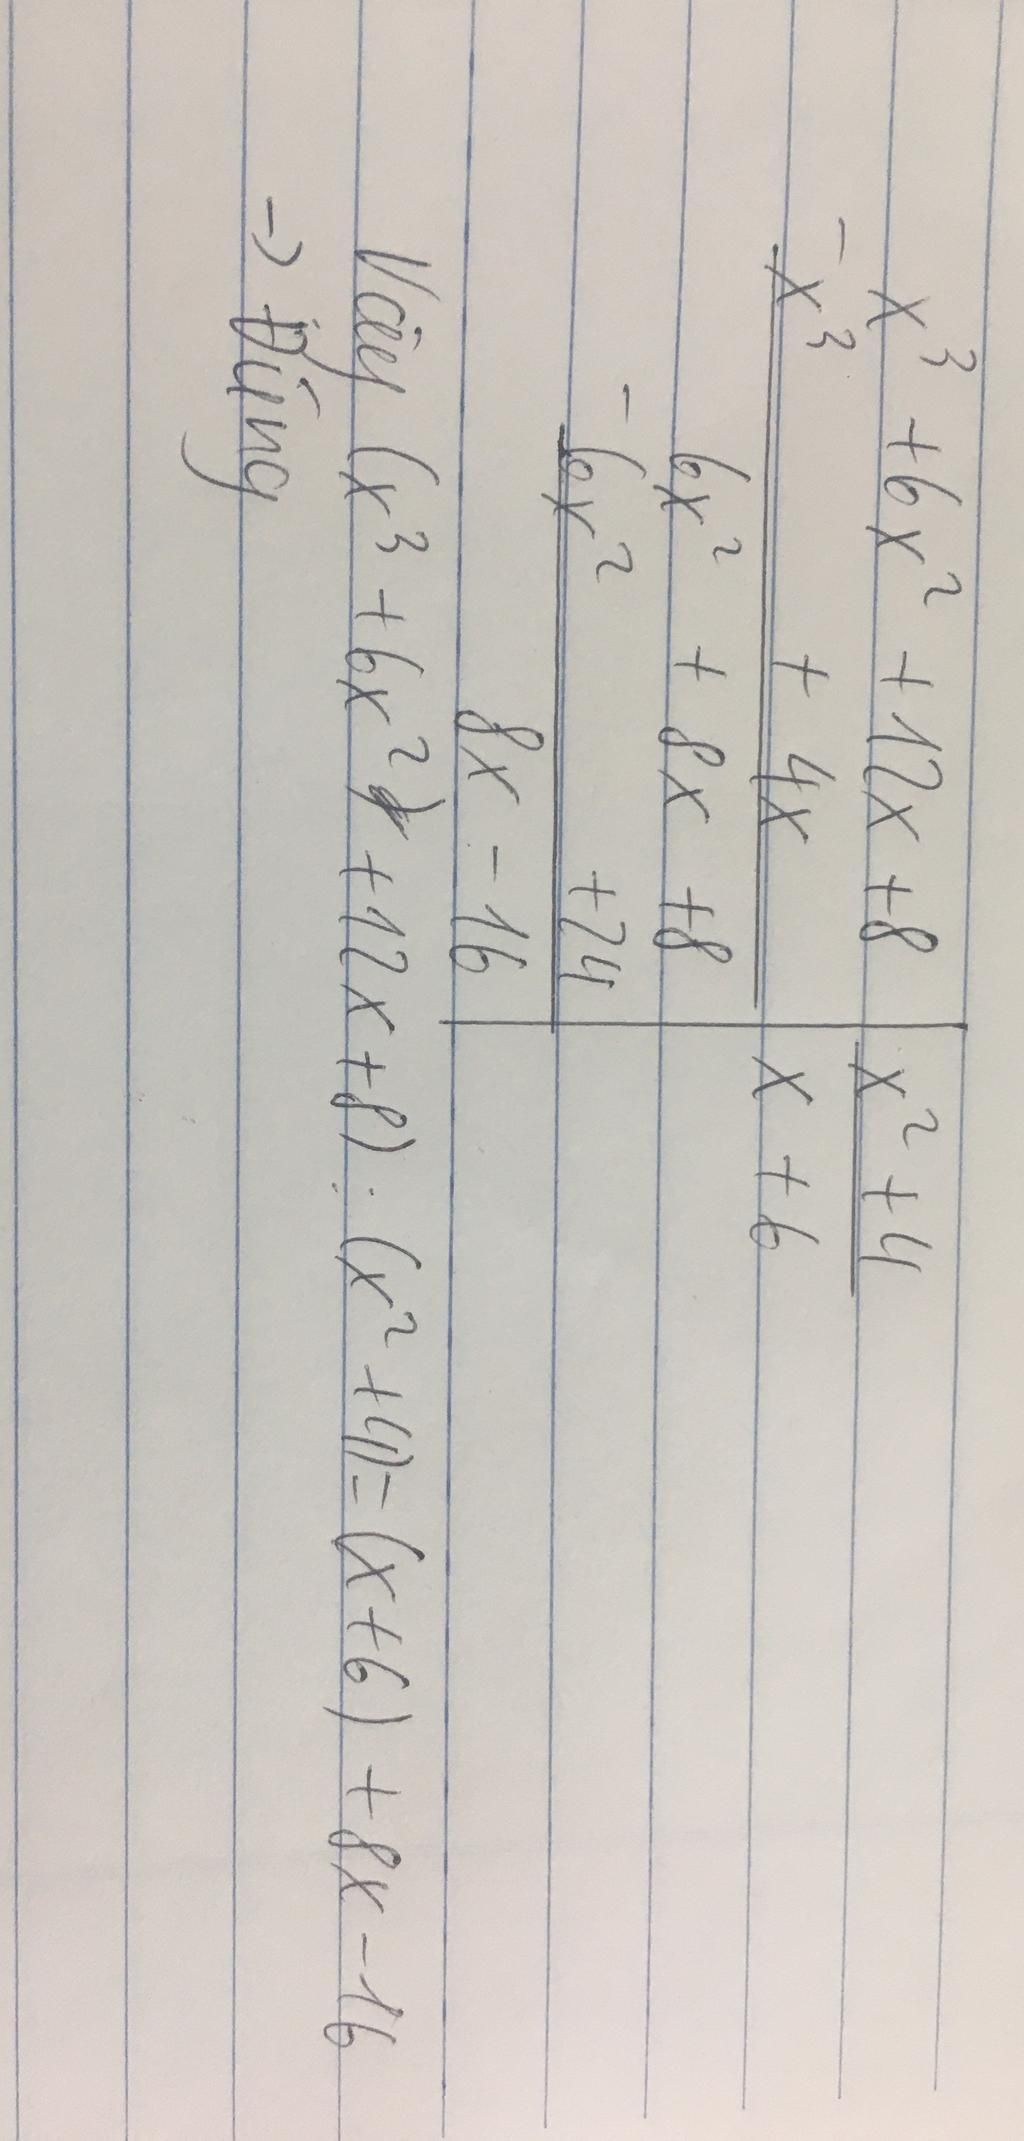 x³ + 6x² + 12x + 8 | x² + 4
- x³ + 4x | x + 6
6x² + 8x + 8
- 6x² + 24
8x - 16
Vậy (x³ + 6x² + 12x + 8) : (x² + 4) = (x + 6) + 8x - 16
-> Đúng